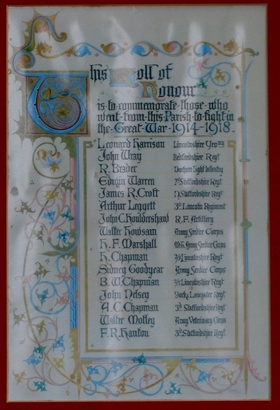 This Roll of
Honour
is to commemorate those who
went from this Parish to fight in
the Great War 1914-1918.
Leonard Harrison Lincolnshire Yeo
John Wray Bedfordshire Regt
R. Durham Light Infantry
Edwin Warren Staffordshire Regt
James R. Croft Staffordshire Regt
Arthur Leggett Lincoln Regiment
John C. R.F. Artillery
Walter Howsam Army Service Corps
H. F. Marshall Army Service Corps
H. Chapman Lincolnshire Regt
Sidney Goodyear Army Service Corps
B. W. Chapman Lincolnshire Regt
John York & Lancaster Regt
A. C. Chapman Staffordshire Regt
Walter Motley Army Veterinary Corps
F. R. Hanson Staffordshire Regt